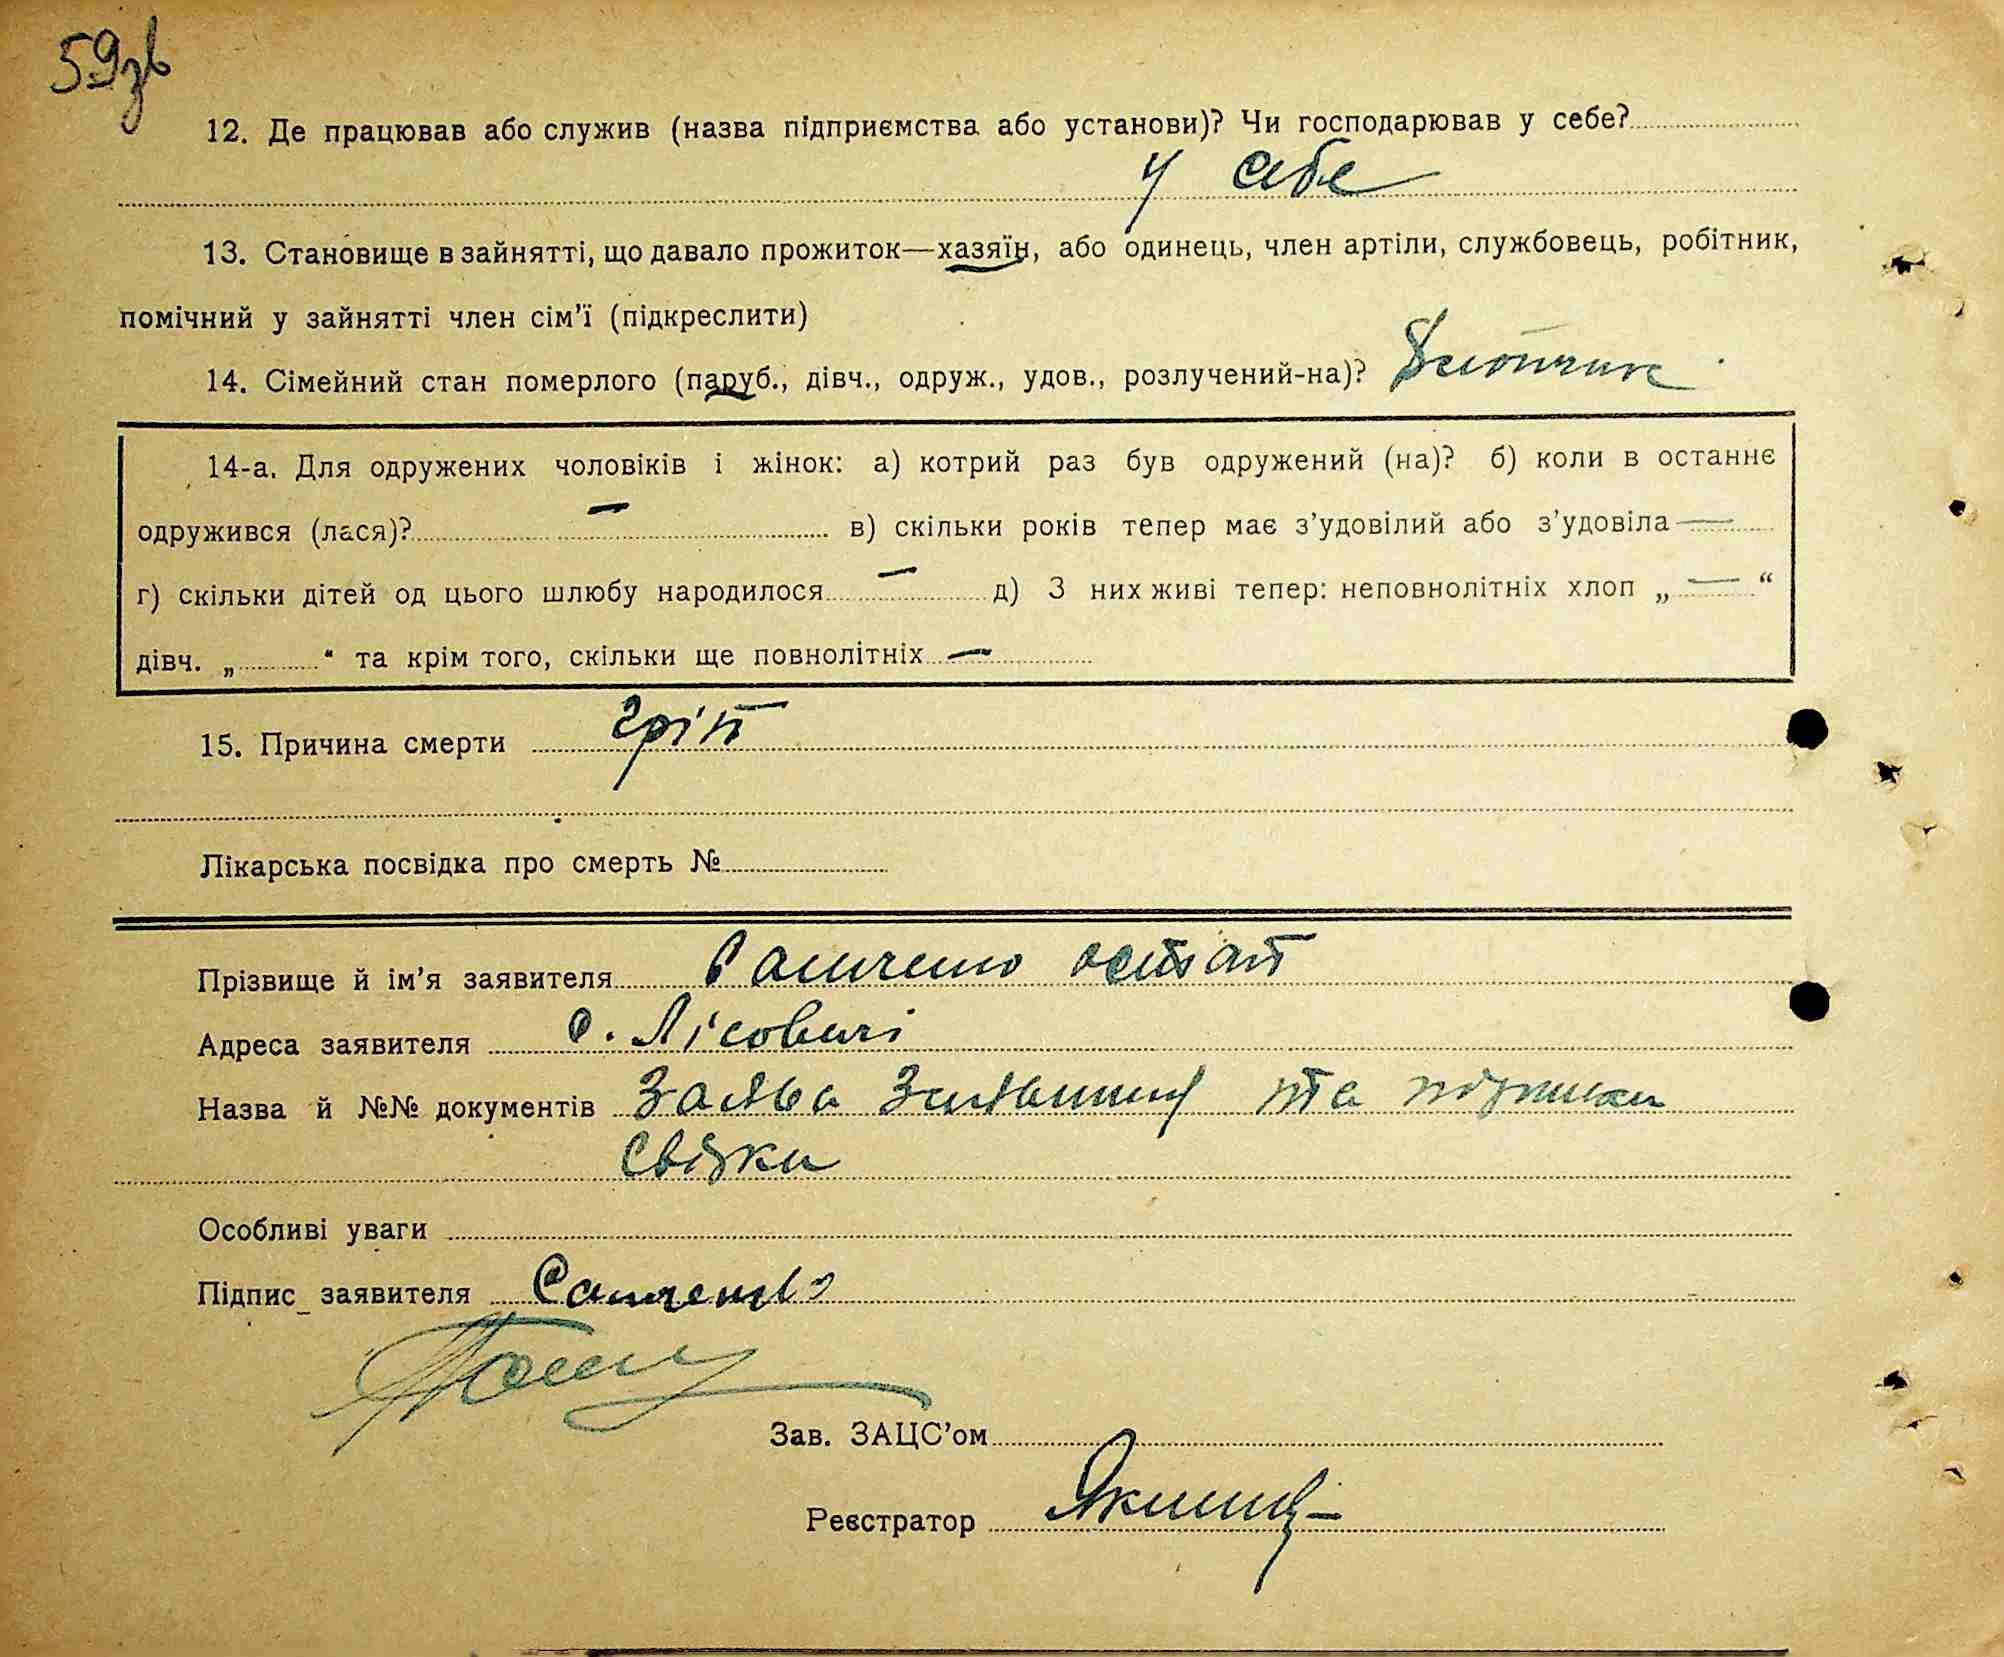 59зв
12. Де працював або служив (назва підприємства або установи)? Чи господарював у себе?
у себе
13. Становище в зайнятті, що давало прожиток—хазяїн, або одинець, член артіли, службовець, робітник,
помічний у зайнятті член сім’ї (підкреслити)
14. Сімейний стан померлого (паруб., дівч., одруж., удов., розлучений-на)?
14-а. Для одружених чоловіків і жінок: а) котрий раз був одружений (на)? б) коли в останнє
одружився (лася)? — в) скільки років тепер має з’удовілий або з’удовіла —
г) скільки дітей од цього шлюбу народилося — д) З них живі тепер: неповнолітніх хлоп „ — “
дівч. „ “ та крім того, скільки ще повнолітніх —
15. Причина смерти гріп
Лікарська посвідка про смерть №
Прізвище й ім’я заявителя Остап
Адреса заявителя с. Лісовичі
Назва й №№ документів Заява та
свідки
Особливі уваги
Підпис заявителя
Зав. ЗАЦС’ом
Реєстратор